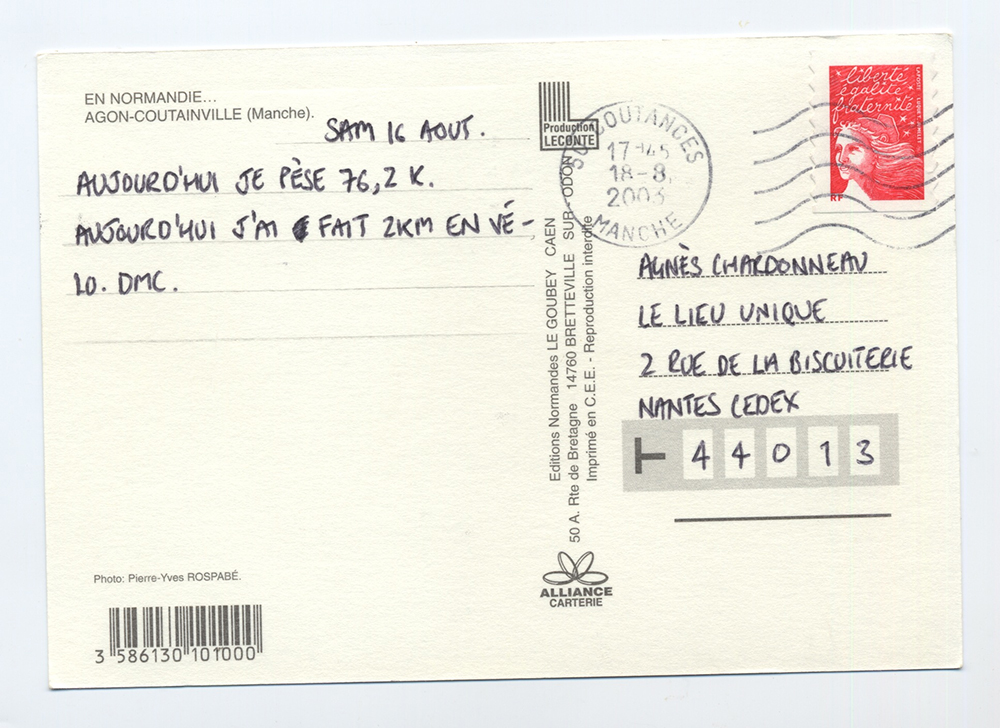 EN NORMANDIE...
AGON-COUTAINVILLE (Manche).
SAM 16 AOUT.
AUJOURD'HUI JE PÈSE 76,2 K.
AUJOURD'HUI J'AI FAIT 2KM EN VÉ-
LO. DMC.
Photo: Pierre-Yves ROSPABÉ.
3 586130 101000
Production
LECONTE
Editions Normandes LE GOUBEY CAEN
50 A. Rte de Bretagne 14760 BRETTEVILLE SUR - ODON
Imprimé en C.E.E. - Reproduction interdite
ALLIANCE
CARTERIE
COUTANCES
17-45
18-8
2003
MANCHE
liberté
égalité
fraternité
RF
LA POSTE
AGNÈS CHARDONNEAU
LE LIEU UNIQUE
2 RUE DE LA BISCUITERIE
NANTES CEDEX
44013